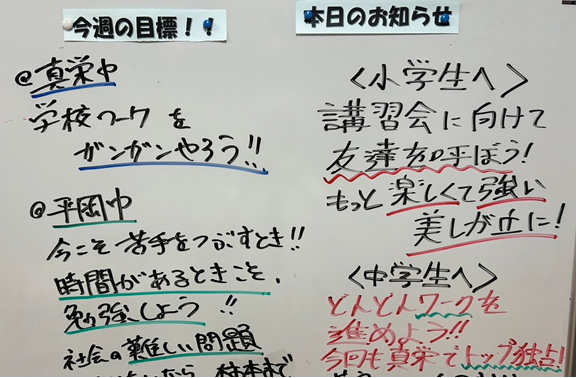 今週の目標！！
@真栄中
学校ワークを
ガンガンやろう!!
@平岡中
今こそ苦手をつぶすとき!!
時間があるときこそ、
勉強しよう!!
社会の難しい問題
本日のお知らせ
〈小学生へ〉
講習会に向けて
友達を呼ぼう!
もっと楽しくて強い
美しが丘に!
〈中学生へ〉
どんどんワークを
進めよう!!
今回も真栄でトップ独占!